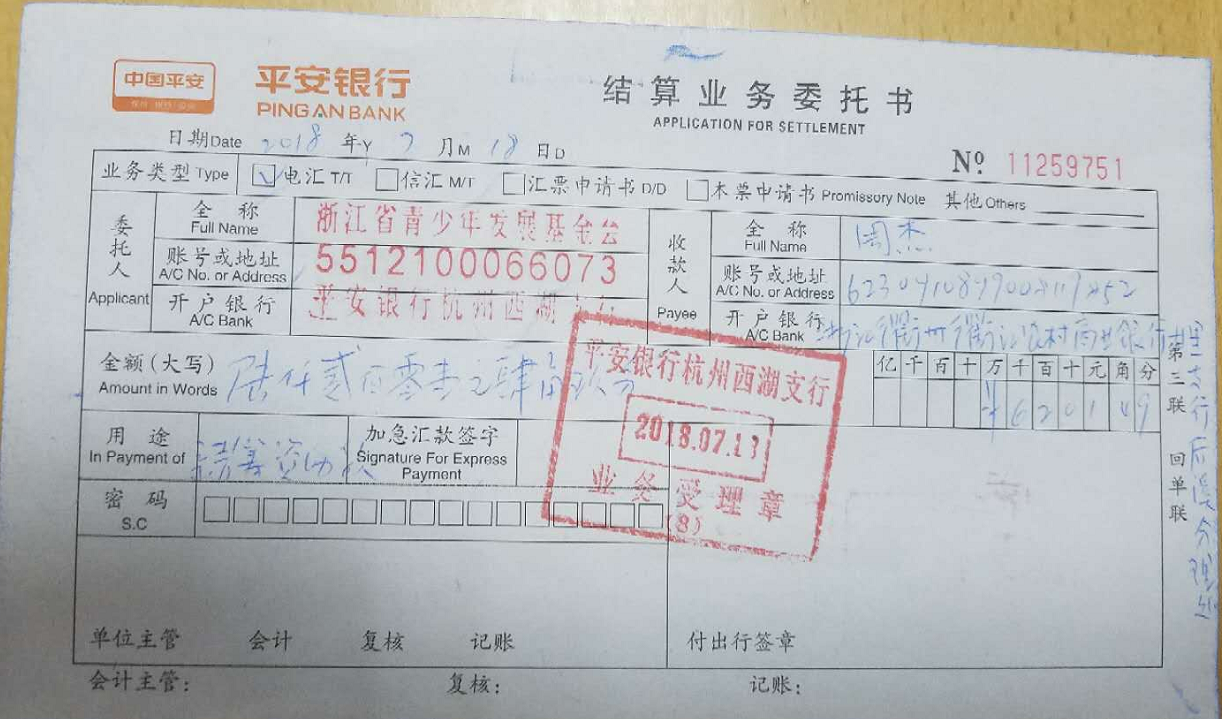 中国平安
平安银行
PING AN BANK
结算业务委托书
APPLICATION FOR SETTLEMENT
日期Date 2018 年Y 7 月M 18 日D
Nº 11259751
业务类型 Type ☑电汇 T/T □信汇 M/T □汇票申请书 D/D □本票申请书 Promissory Note 其他 Others
委托人 Applicant
全称 Full Name 浙江省青少年发展基金会
账号或地址 A/C No. or Address 5512100066073
开户银行 A/C Bank 平安银行杭州西湖支行
收款人 Payee
全称 Full Name 周杰
账号或地址 A/C No. or Address
开户银行 A/C Bank 浙江衢州衢江农村商业银行
金额(大写) Amount in Words 陆仟贰百零壹元肆角玖分
亿千百十万千百十元角分
¥620149
用途 In Payment of 资助款
加急汇款签字 Signature For Express Payment
密码 S.C
平安银行杭州西湖支行
2018.07.13
业务受理章
(8)
第三联 回单联
支行后溪分理处
单位主管 会计 复核 记账
付出行签章
会计主管: 复核: 记账: